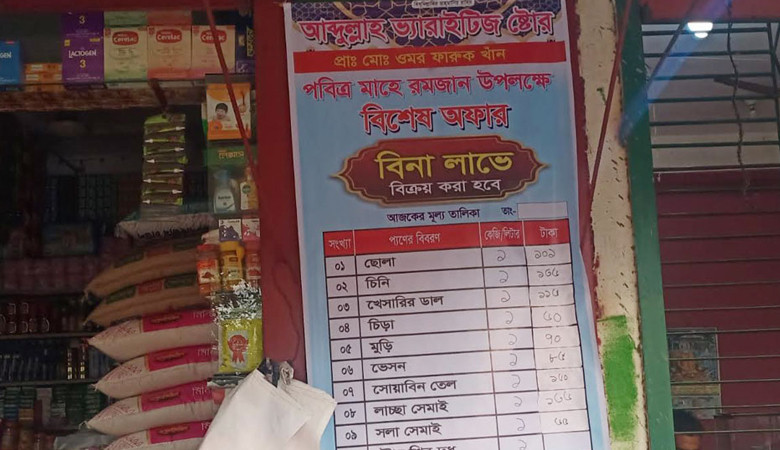 আব্দুল্লাহ ভ্যারাইটিজ ষ্টোর
প্রাঃ মোঃ ওমর ফারুক খাঁন
পবিত্র মাহে রমজান উপলক্ষে
বিশেষ অফার
বিনা লাভে
বিক্রয় করা হবে
আজকের মূল্য তালিকা তাং-
সংখ্যা প্যণের বিবরণ কেজি/লিটার টাকা
০১ ছোলা ১ ১০১
০২ চিনি ১
০৩ খেসারির ডাল ১
০৪ চিড়া ১ ৫০
০৫ মুড়ি ১ ৭০
০৬ ভেসন ১ ৮৫
০৭ সোয়াবিন তেল ১
০৮ লাচ্ছা সেমাই ১
০৯ সলা সেমাই ১
3
LACTOGEN
3
Cerelac
Cerelac